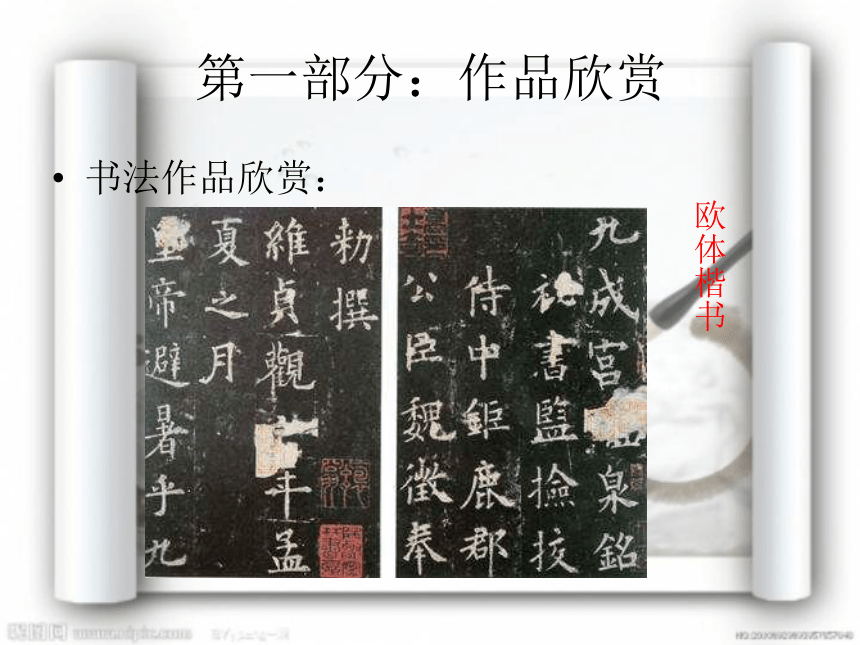 第一部分：作品欣赏
• 书法作品欣赏：
欧体楷书
九成宮泉銘
祕書監撿挍
侍中鉅鹿郡
公臣魏徵奉
勑撰
維貞觀年孟
夏之月
皇帝避暑乎九
昵图网 www.nipic.com